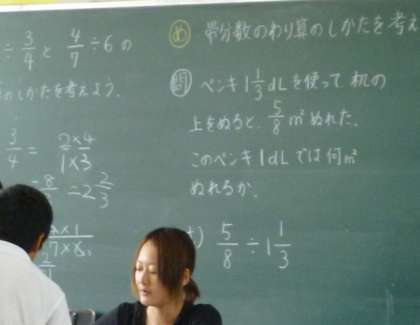 ÷ 3/4 と 4/7 ÷ 6 の
のしかたを考えよう。
3/4 = 2×4/1×3
= 8/ = 2 2/3
め 帯分数のわり算のしかたを考え
問 ペンキ 1 1/3 dLを使って 机の
上をぬると、5/8 m² ぬれた。
このペンキ 1dLでは何m²
ぬれるか。
5/8 ÷ 1 1/3